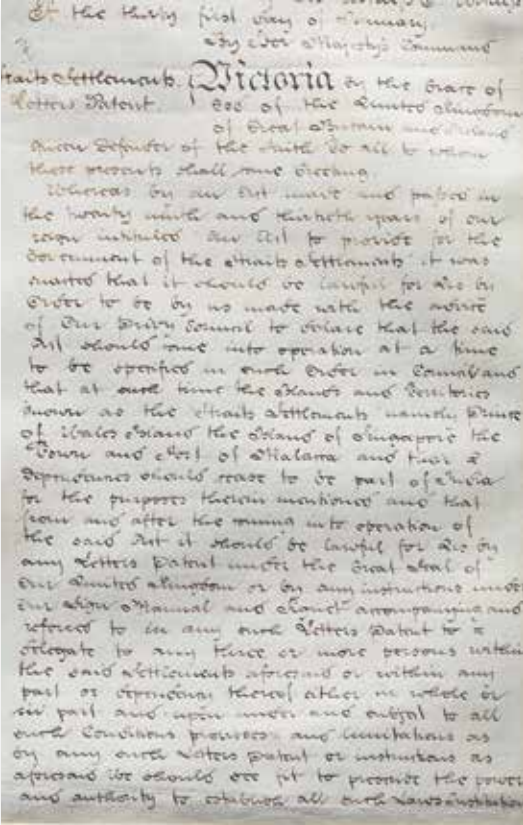 the thirty first day of January
By Her Majestys Command
Straits Settlements. Victoria by the Grace of
Letters Patent. God of the United Kingdom
of Great Britain and Ireland
Queen Defender of the Faith To all to whom
these presents shall come Greeting.
Whereas by an Act made and passed in
the twenty ninth and thirtieth years of our
reign intituled An Act to provide for the
Government of the Straits Settlements it was
enacted that it should be lawful for Us by
Order to be by us made with the advice
of Our Privy Council to declare that the said
Act should come into operation at a time
to be specified in such Order in Council and
that at such time the Islands and Territories
known as the Straits Settlements namely Prince
of Wales Island the Island of Singapore the
Town and Fort of Malacca and their
Dependencies should cease to be part of India
for the purposes therein mentioned and that
from and after the coming into operation of
the said Act it should be lawful for Us by
any Letters Patent under the Great Seal of
Our United Kingdom or by any instructions under
Our Sign Manual and Signet accompanying and
referred to in any such Letters Patent to
delegate to any three or more persons within
the said Settlements aforesaid or within any
part or dependency thereof either in whole or
in part and upon under and subject to all
such Conditions provisoes and limitations as
by any such Letters Patent or instructions as
aforesaid We should see fit to prescribe the power
and authority to establish all such Laws institutions